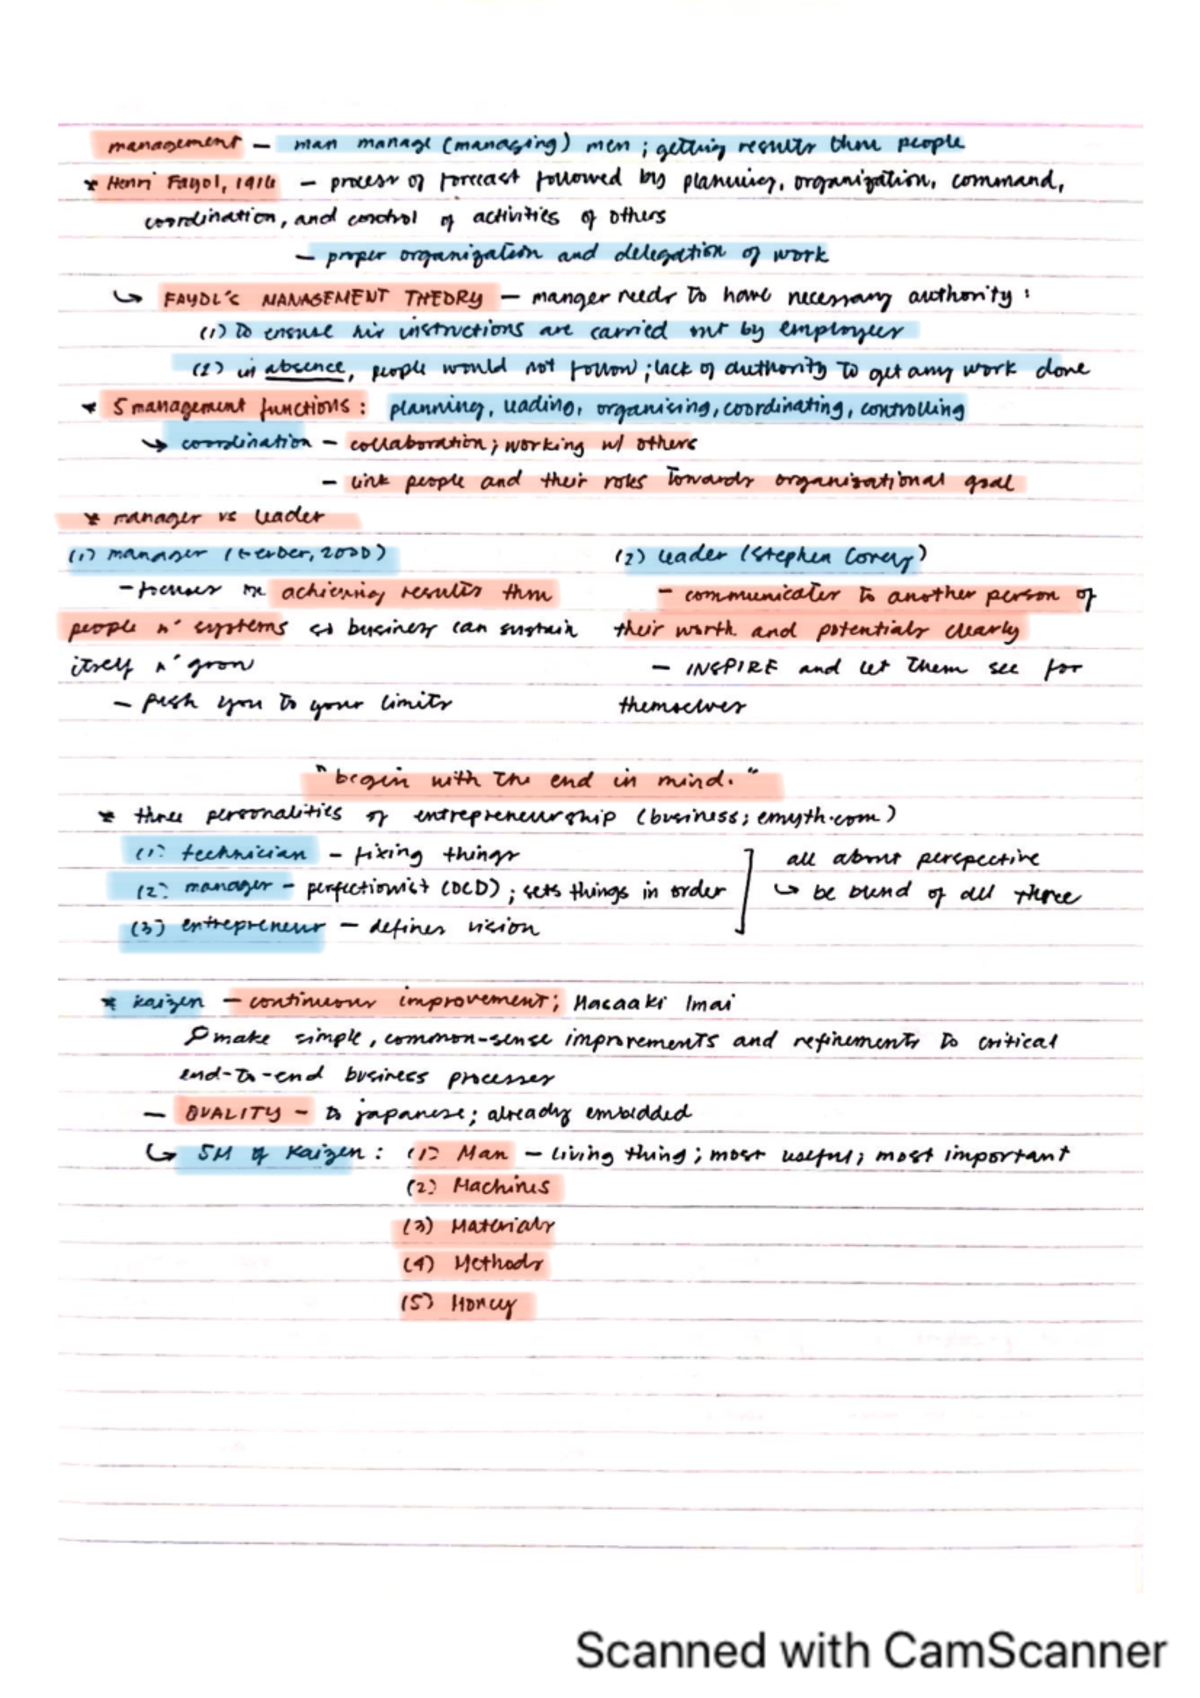 management — man manage (managing) men ; getting results thru people
* Henri Fayol, 1916 — process of forecast followed by planning, organization, command,
coordination, and control of activities of others
— proper organization and delegation of work
↳ FAYOL'S MANAGEMENT THEORY — manger needs to have necessary authority :
(1) to ensure his instructions are carried out by employees
(2) in absence, people would not follow ; lack of authority to get any work done
* 5 management functions : planning, leading, organizing, coordinating, controlling
↳ coordination — collaboration ; working w/ others
— link people and their roles towards organizational goal
* manager vs leader
(1) manager (Gerber, 2000)
— focuses on achieving results thru
people n' systems so business can sustain
itself n' grow
— push you to your limits
(2) leader (Stephen Covey)
— communicates to another person of
their worth and potentials clearly
— INSPIRE and let them see for
themselves
"begin with the end in mind."
* three personalities of entrepreneurship (business; emyth.com)
(1) technician — fixing things
(2) manager — perfectionist (OCD) ; sets things in order
(3) entrepreneur — defines vision
all about perspective
↳ be blend of all three
* kaizen — continuous improvement; Masaaki Imai
make simple, common-sense improvements and refinements to critical
end-to-end business processes
— QUALITY — to japanese; already embedded
↳ 5M of Kaizen : (1) Man — living thing ; most useful; most important
(2) Machines
(3) Materials
(4) Methods
(5) Money
Scanned with CamScanner